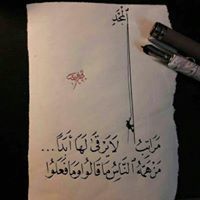 ٱلْمَجْدُ
مَرَاتِبُ لَا تَرْقَىٰ لَهَا أَبَدًا ...
مَنْ هَمُّهُ ٱلنَّاسُ مَا قَالُوا وَمَا فَعَلُوا